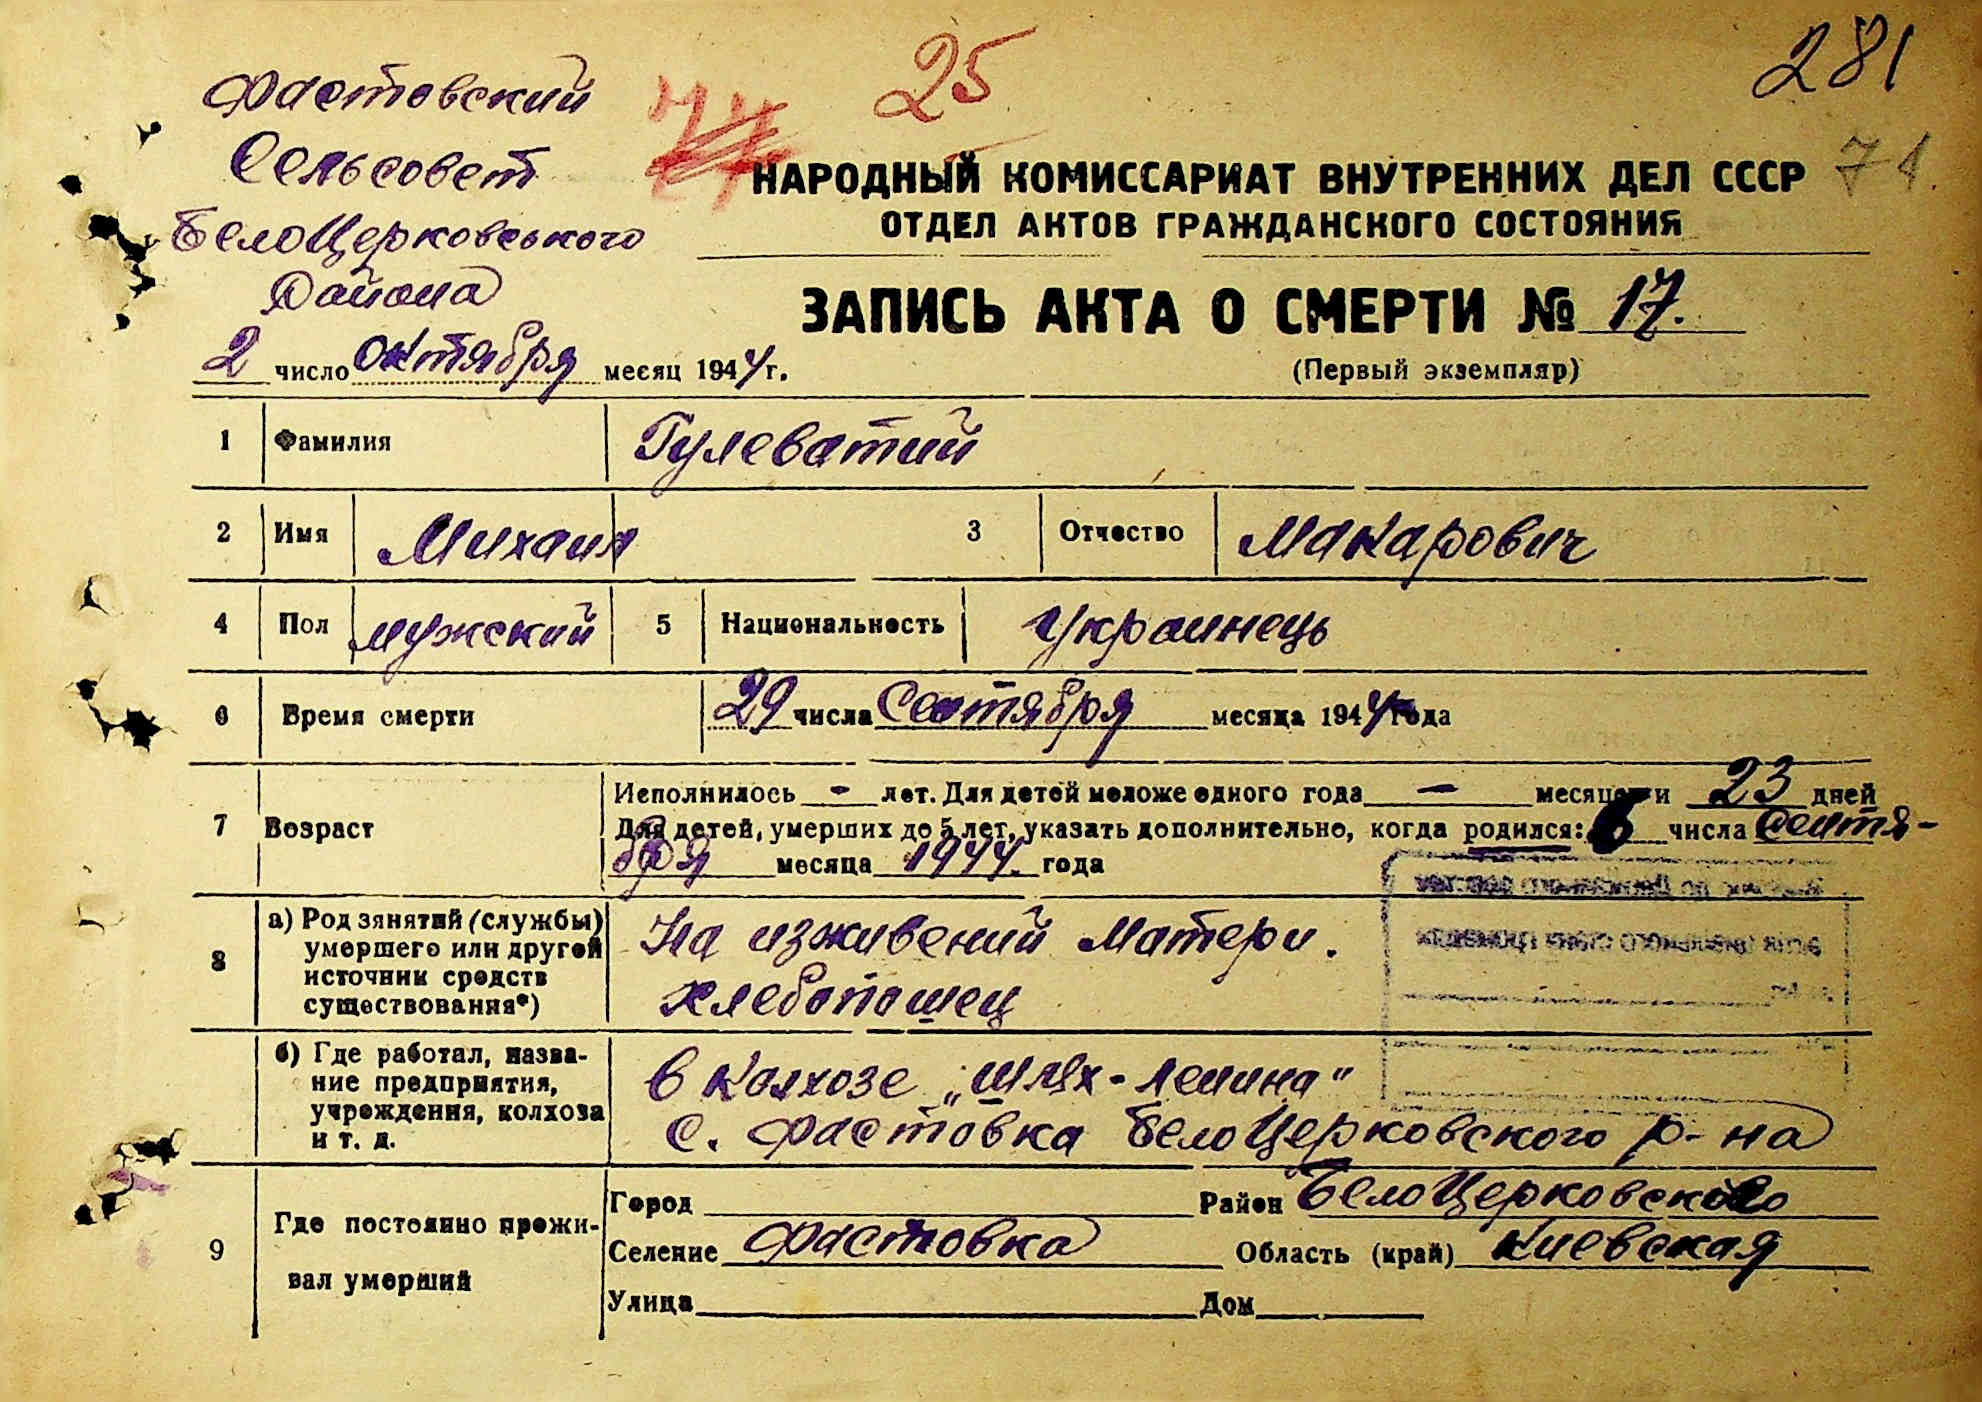 281
25
Фастовский
Сельсовет
БелоЦерковського
Района
НАРОДНЫЙ КОМИССАРИАТ ВНУТРЕННИХ ДЕЛ СССР 71.
ОТДЕЛ АКТОВ ГРАЖДАНСКОГО СОСТОЯНИЯ
ЗАПИСЬ АКТА О СМЕРТИ № 17.
(Первый экземпляр)
2 число Октября месяц 1944 г.
1 Фамилия Гулеватий
2 Имя Михаил 3 Отчество Макарович
4 Пол мужский 5 Национальность Украинець
6 Время смерти 29 числа Сентября месяца 1944 года
7 Возраст Исполнилось - лет. Для детей моложе одного года — месяцев и 23 дней
Для детей, умерших до 5 лет, указать дополнительно, когда родился: 6 числа Сентя-
бря месяца 1944. года
8 а) Род занятий (службы)
умершего или другой
источник средств
существования*)
На изживений Матери.
хлебопошец
б) Где работал, назва-
ние предприятия,
учреждения, колхоза
и т. д.
в Колхозе „Шлях-Ленина"
С. Фастовка БелоЦерковского р-на
9 Где постоянно прожи-
вал умерший
Город Район БелоЦерковского
Селение Фастовка Область (край) Киевская
Улица Дом